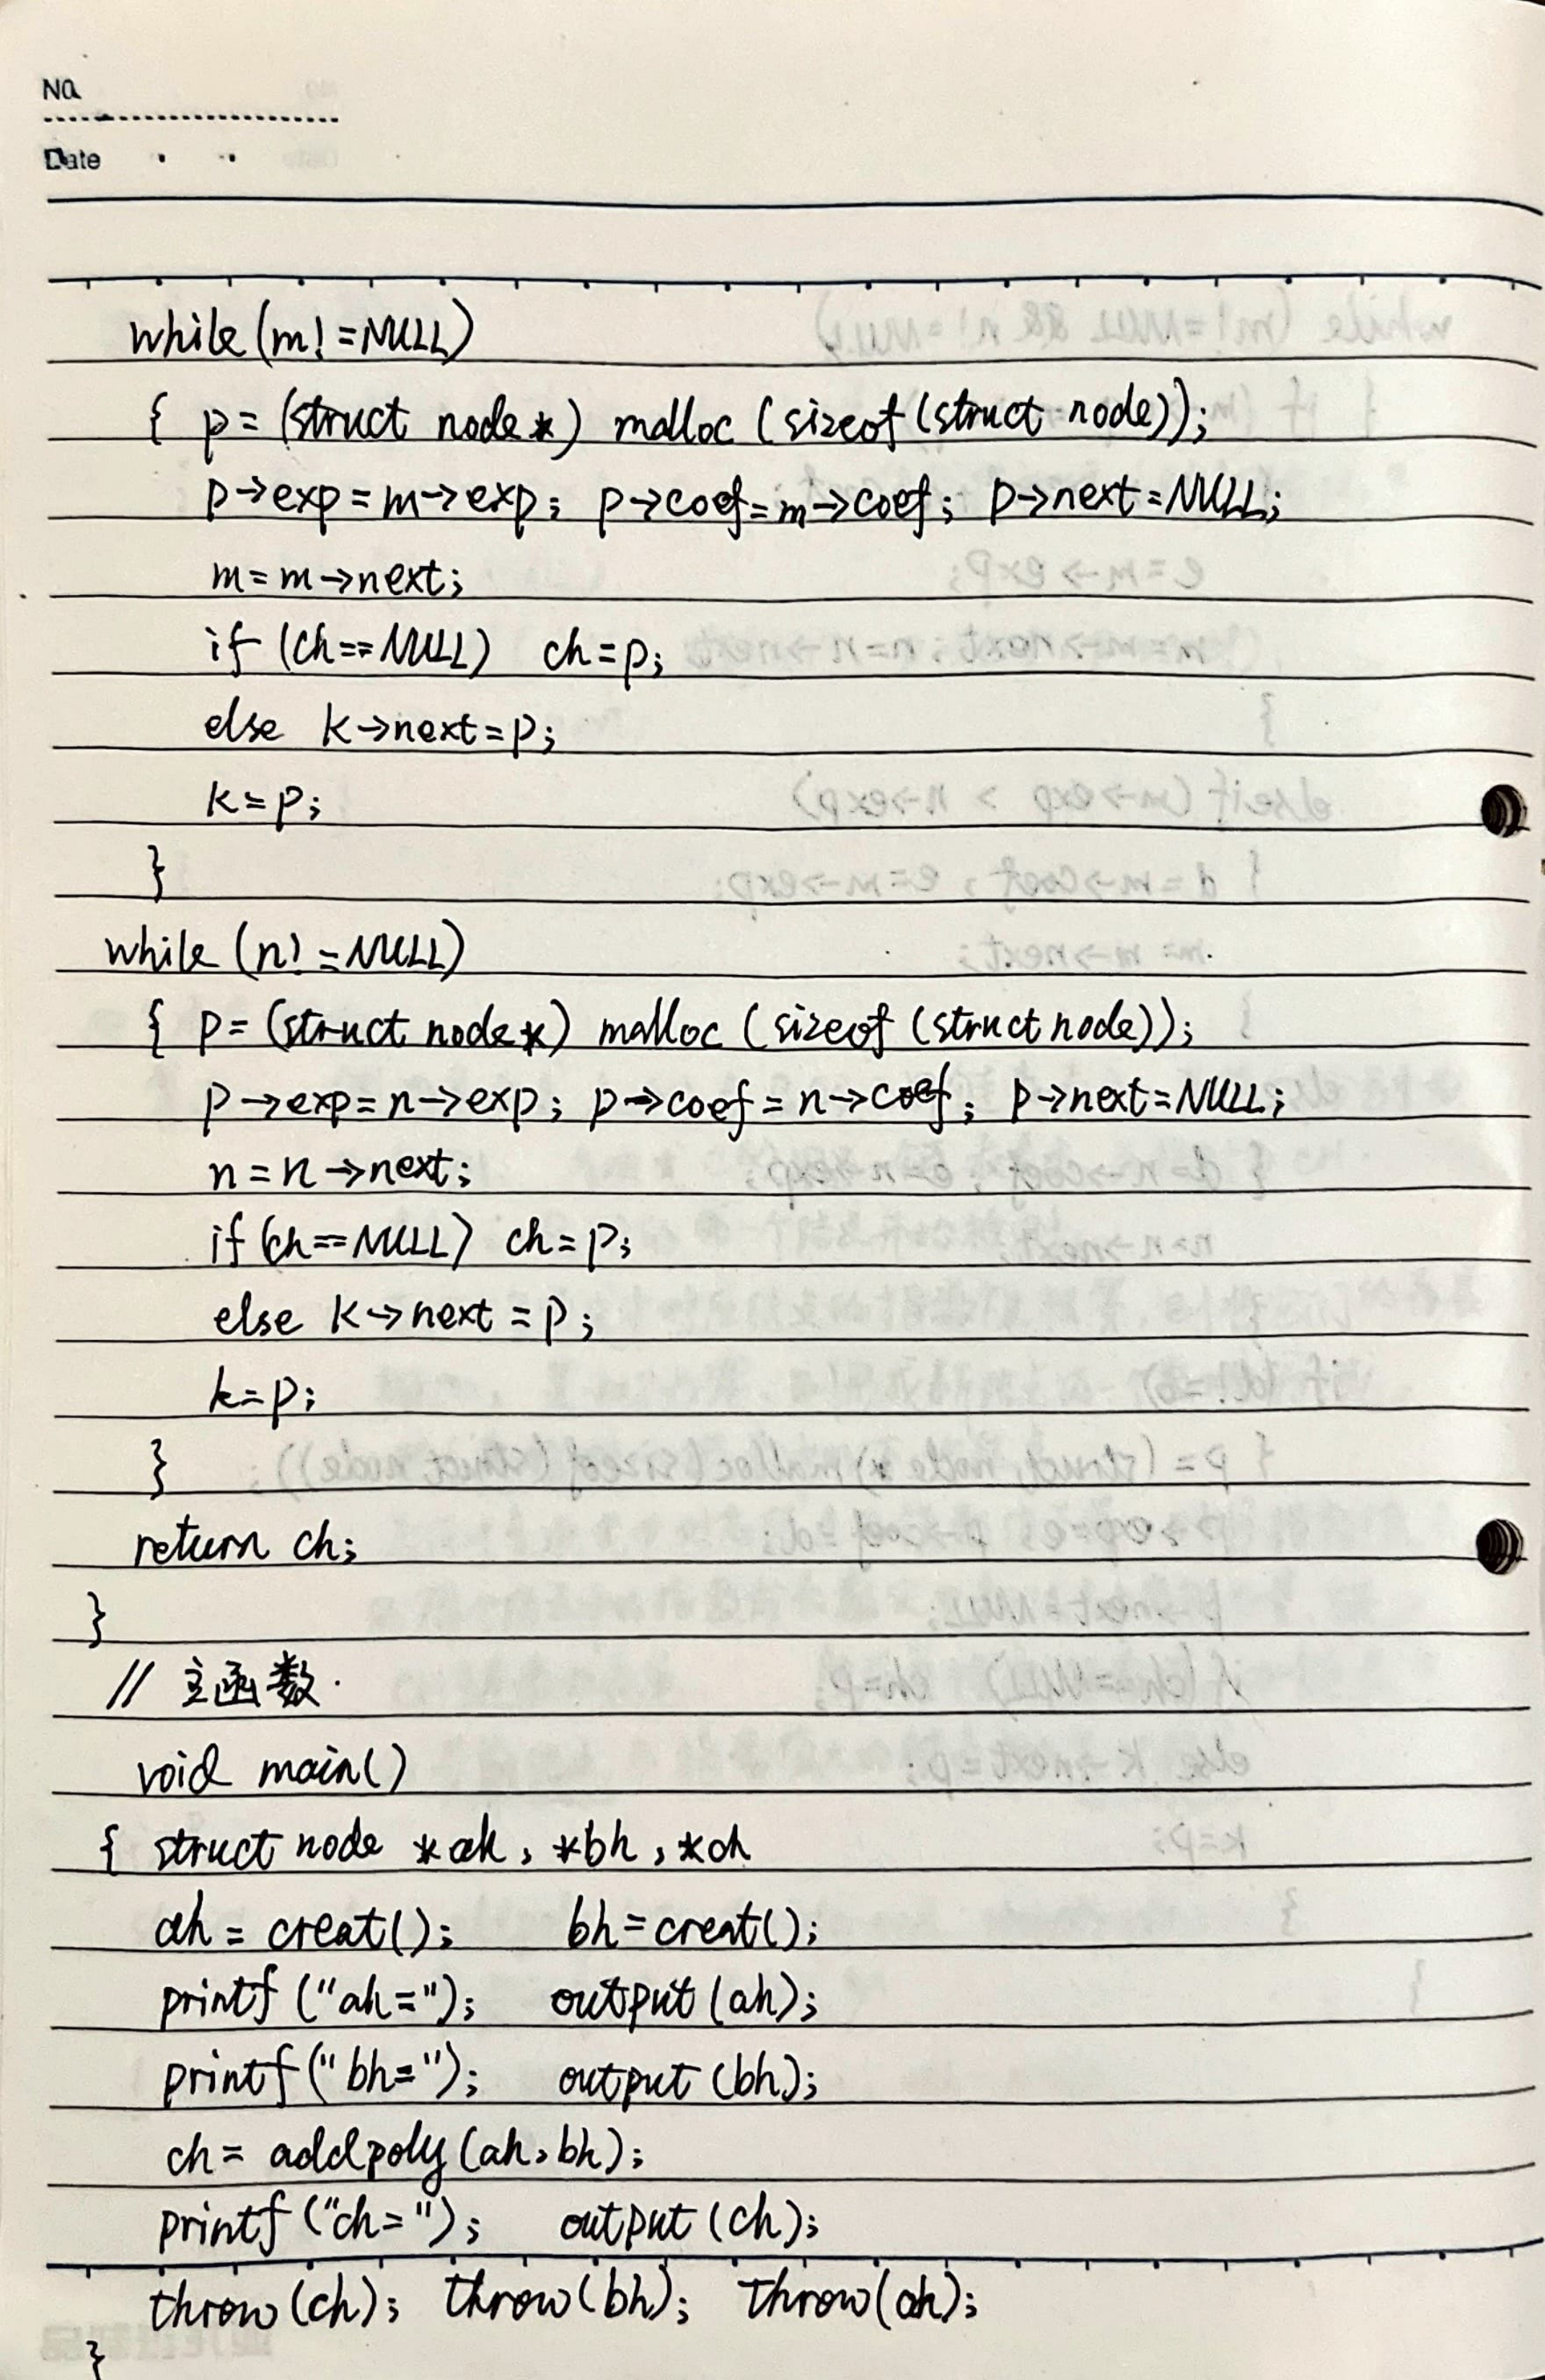 No.
Date
while(m!=NULL)
{ p=(struct node*) malloc (sizeof(struct node));
p→exp=m→exp; p→coef=m→coef; p→next=NULL;
m=m→next;
if (ch==NULL) ch=p;
else k→next=p;
k=p;
}
while (n!=NULL)
{ p=(struct node*) malloc (sizeof (struct node));
p→exp=n→exp; p→coef=n→coef; p→next=NULL;
n=n→next;
if(ch==NULL) ch=p;
else k→next=p;
k=p;
}
return ch;
}
// 主函数.
void main()
{ struct node *ah, *bh, *ch
ah=creat(); bh=creat();
printf ("ah="); output (ah);
printf("bh="); output (bh);
ch= addpoly (ah,bh);
printf ("ch="); output (ch);
throw(ch); throw(bh); throw(ah);
}